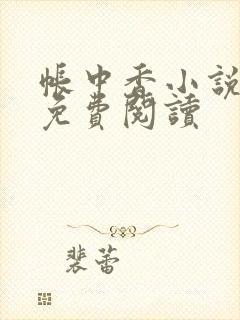 帳中香小說
免費閱讀
裴蕾